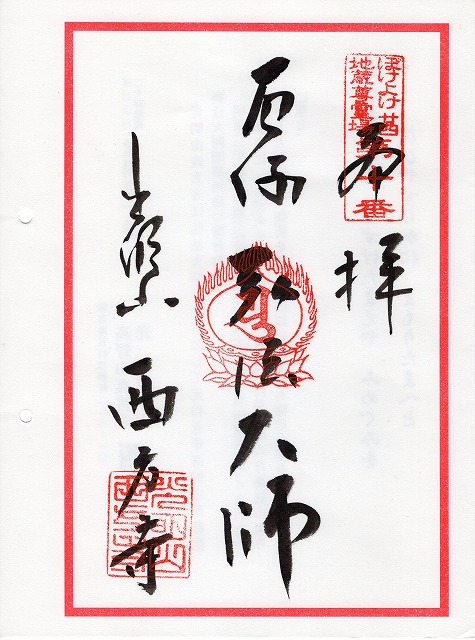 ぼけよけ
地蔵尊霊場
十番
奉拝
厄除 弘法大師
光明山 西方寺